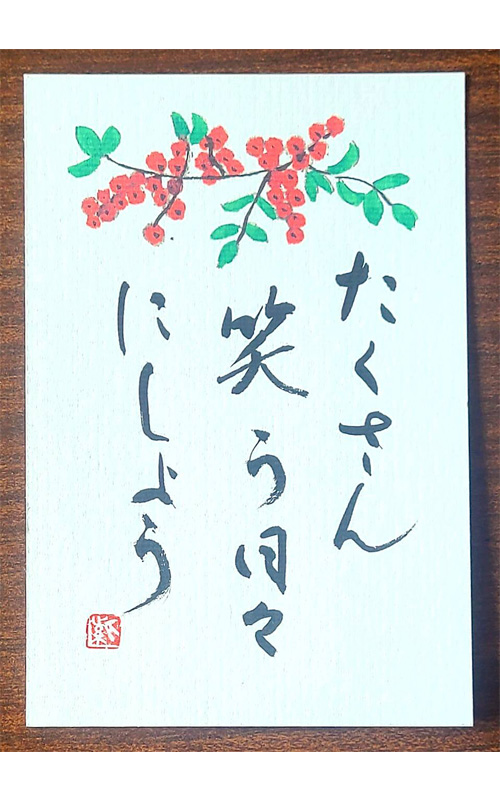 たくさん
笑う日々
にしよう